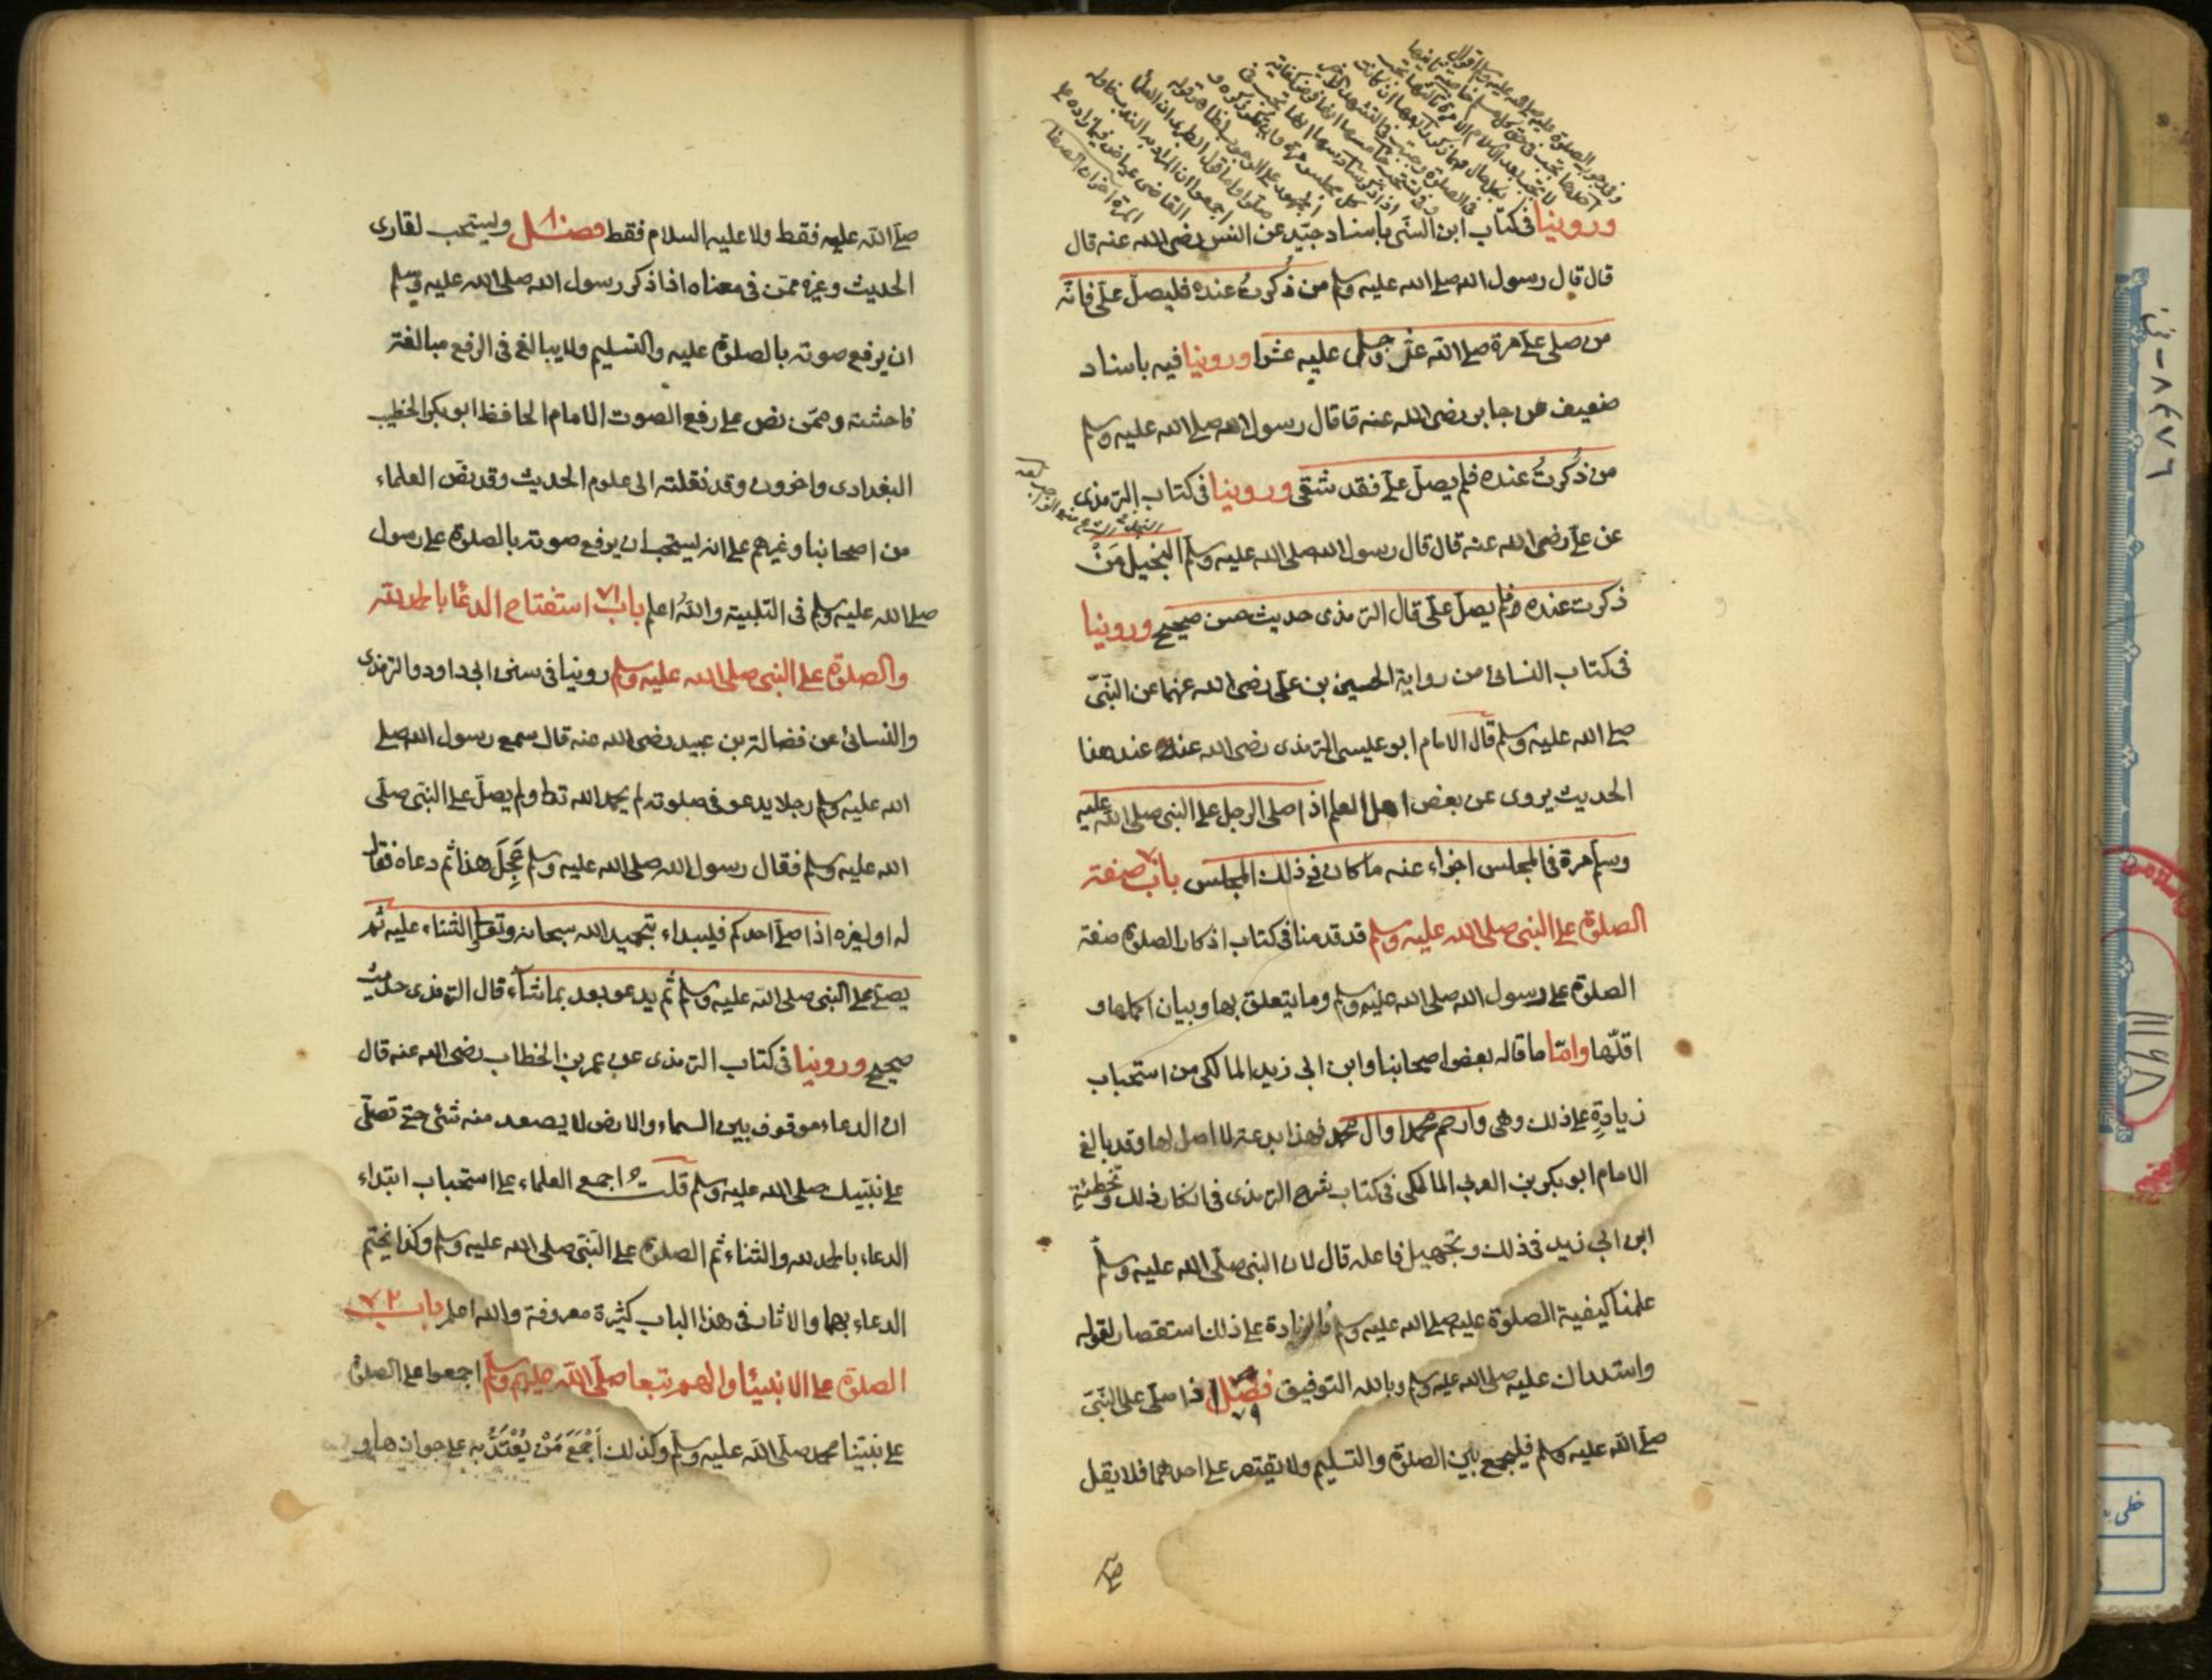 وروينا في كتاب ابن السني باسناد جيّد عن انس رضى الله عنه قال
قال قال رسول الله صلى الله عليه وسلم من ذُكرتُ عنده فليصلّ علىّ فانّه
من صلى علىّ مرة صلى الله عزّ وجلّ عليه عشرا وروينا فيه باسناد
ضعيف عن جابر رضى الله عنه قا قال رسول الله صلى الله عليه وسلم
من ذُكرتُ عنده فلم يصلّ علىّ فقد شقى وروينا في كتاب الترمذى
عن علىّ رضى الله عنه قال قال رسول الله صلى الله عليه وسلّم البخيل مَنْ
ذكرت عنده فلم يصلّ علىّ قال الترمذى حديث حسن صحيح وروينا
في كتاب النسائى من رواية الحسين بن علىّ رضى الله عنهما عن النّبىّ
صلى الله عليه وسلم قال الامام ابو عيسى الترمذى رضى الله عنه عند هذا
الحديث يروى عن بعض اهل العلم اذا صلى الرجل على النبى صلى الله عليه
وسلم مرة في المجلس اجزاء عنه ما كان في ذلك المجلس باب صفته
الصلوة على النبى صلى الله عليه وسلم قد قدمنا في كتاب اذكار الصلوة صفة
الصلوة على رسول الله صلى الله عليه وسلم وما يتعلق بها وبيان اكملها و
اقلّها وامّا ما قاله بعض اصحابنا وابن ابى زيد المالكى من استحباب
زيادةِ على ذلك وهى وارحم محمدا وال محمد فهذا بدعة لا اصل لها وقد بالغ
الامام ابو بكر بن العربى المالكى في كتاب شرح الترمذى في انكار ذلك وتخطئة
ابن ابى زيد في ذلك وتجهيل فاعله قال لان النبى صلّى الله عليه وسلّم
علمنا كيفية الصلوة عليه صلى الله عليه وسلم فالزيادة على ذلك استقصار لقوله
واستدراك عليه صلى الله عليه وسلم وبالله التوفيق فصل ٧٩ اذا صلّى على النّبىّ
صلّى الله عليه وسلم فليجمع بين الصلوة والتسليم ولا يقتصر على احدهما فلا يقل
صلّى الله عليه فقط ولا عليه السلام فقط فصل ٨٠ ويستحب لقارى
الحديث وغيره ممّن في معناه اذا ذكر رسول الله صلى الله عليه وسلم
ان يرفع صوته بالصلوة عليه والتسليم ولا يبالغ في الرفع مبالغة
فاحشة وممّن نص على رفع الصوت الامام الحافظ ابو بكر الخطيب
البغدادى واخرون وقد نقلته الى علوم الحديث وقد نصّ العلماء
من اصحابنا وغيرهم على انه يستحب ان يرفع صوته بالصلوة على رسول
صلى الله عليه وسلم في التلبية واللهُ اعلم باب ٧١ استفتاح الدعا بالحمد لله
والصلوة على النبى صلى الله عليه وسلم روينا في سنن ابى داود والترمذى
والنسائى عن فضالة بن عبيد رضى الله عنه قال سمع رسول الله صلى
الله عليه وسلم رجلا يدعو في صلوته لم يحمد الله تعا ولم يصلّ على النبّى صلّى
الله عليه وسلم فقال رسول الله صلى الله عليه وسلم عَجِلَ هذا ثم دعاه فقال
له او لغيره اذا صلّى احدكم فليبداء بتحميد الله سبحانه وتعالى والثناء عليه ثمّ
يصلّى على النبى صلى الله عليه وسلم ثُم يدعو بعد بما شآء قال الترمذى حديث
صحيح وروينا في كتاب الترمذى عن عمر بن الخطاب رضى الله عنه قال
ان الدعاء موقوف بين السماء والارض لا يصعد منه شئى حتّى تصلّى
على نبيّك صلى الله عليه وسلم قلتُ اجمع العلماء على استحباب ابتداء
الدعاء بالحمد لله والثناء ثم الصلوة على النّبىّ صلى الله عليه وسلم وكذا يختم
الدعاء بهما والاثار في هذا الباب كثيرة معروفة والله اعلم باب ٧٢
الصلوة على الانبيئا والهم تبعا صلّى الله عليهم وسلّم اجمعوا على الصلوة
على نبيّنا محمد صلّى الله عليه وسلم وكذلك أجْمَعَ مَنْ يُعْتَدُّ به على جوازها و